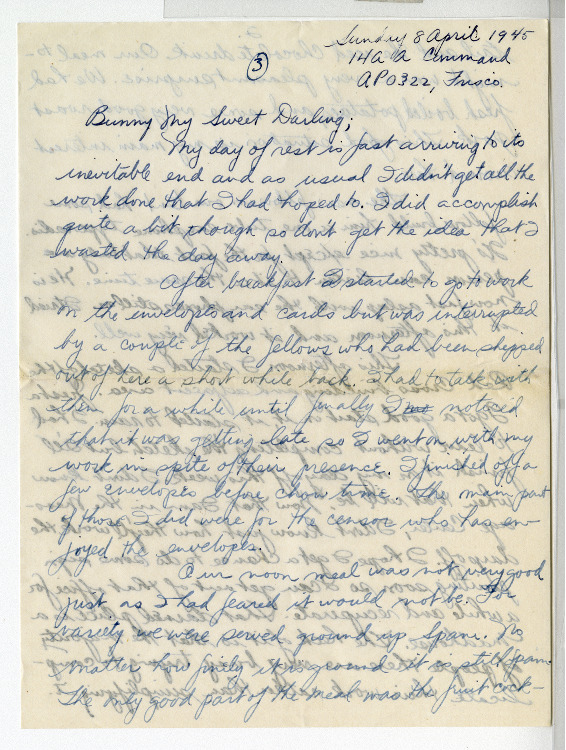 Sunday 8 April 1945
14 A A Command
APO 322, Frisco.
3
Bunny My Sweet Darling;
My day of rest is fast arriving to its
inevitable end and as usual I didn't get all the
work done that I had hoped to. I did accomplish
quite a bit though so don't get the idea that I
wasted the day away.
After breakfast I started to go to work
on the envelopes and cards but was interrupted
by a couple of the fellows who had been shipped
out of here a short while back. I had to talk with
them for a while until finally I noticed
that it was getting late so I went on with my
work in spite of their presence. I finished off a
few envelopes before chow time. The main part
of those I did were for the censor who has en-
joyed the envelopes.
Our noon meal was not very good
just as I had feared it would not be. For
variety we were served ground up Spam. No
matter how finely it is ground it is still spam.
The only good part of the meal was the fruit cock-